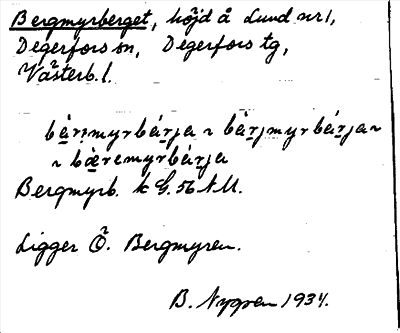 Bergmyrberget, höjd å Lund nr 1,
Degerfors sn, Degerfors tg,
Västerb. l.
bà̱rjmyrbáṟja ~ bà̱rjmyrbáṟja ~
~ bæ̀remyrbáṟja
Bergmyrb. k G. 56 N M.
Ligger Ö. Bergmyren.
B. Nygren 1934.